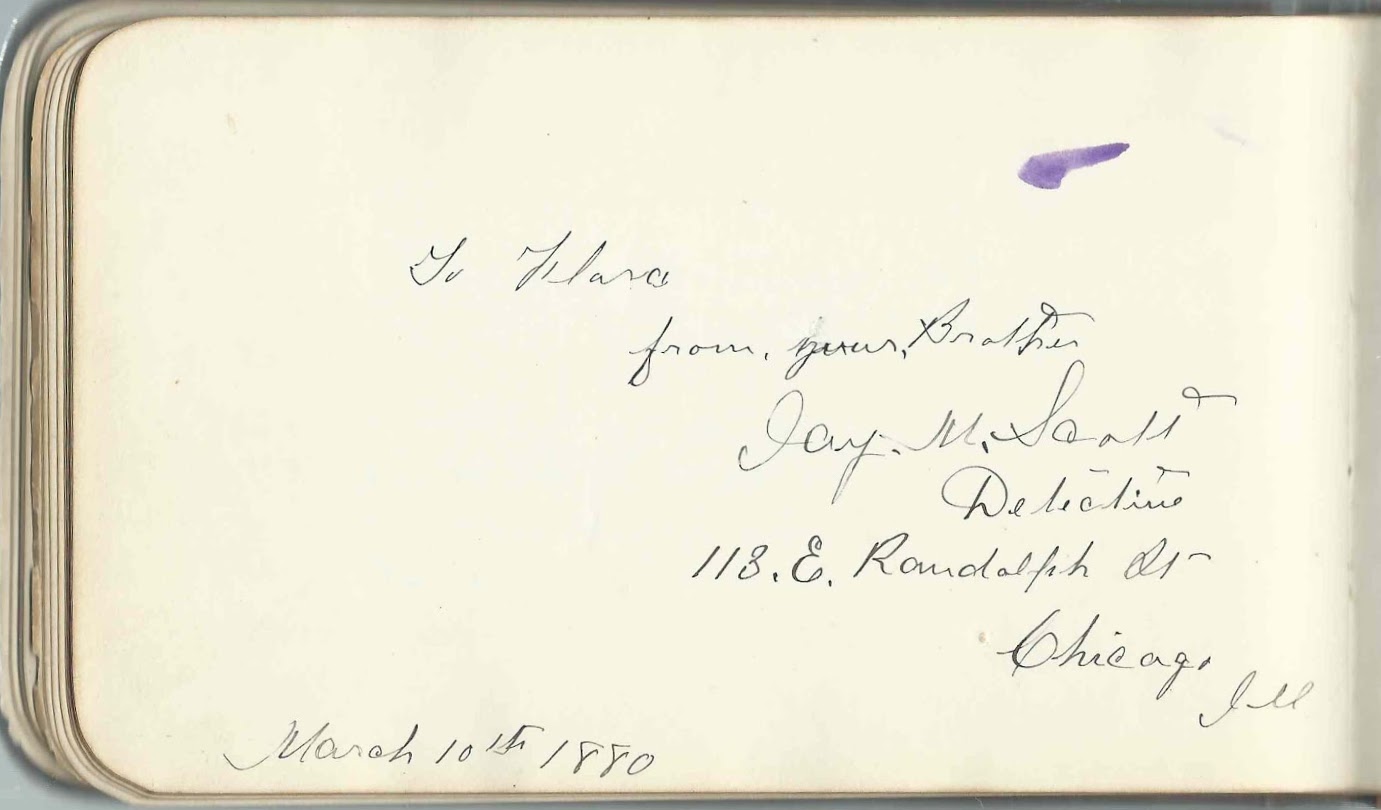 To Flora
from, your, Brother
Jay. M. Scott
Detective
113. E. Randolph St
Chicago
Ill
March 10th 1880